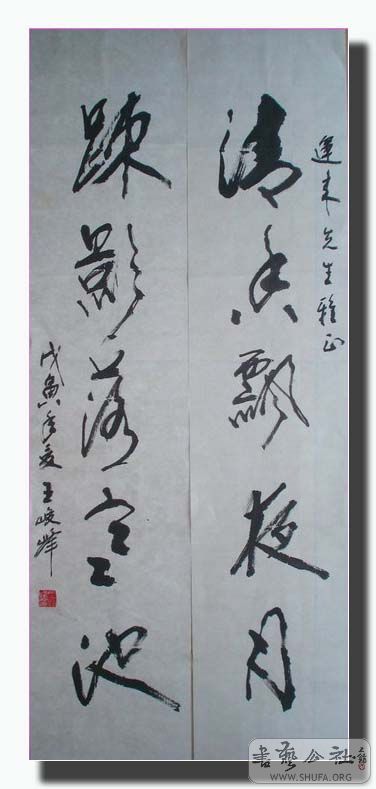 運来先生雅正
清香飄夜月
踈影落空池
戊寅年夏 王峻峰
書藝公社
WWW.SHUFA.ORG